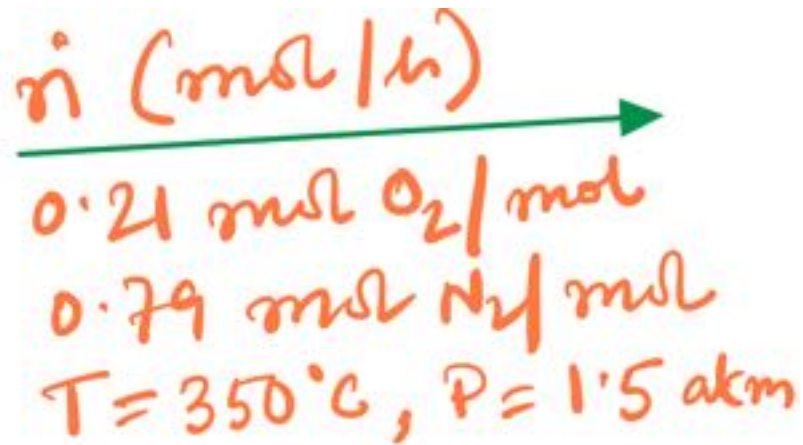 ṅ (mol/h)
0.21 mol O₂/mol
0.79 mol N₂/mol
T = 350°C, P = 1.5 atm